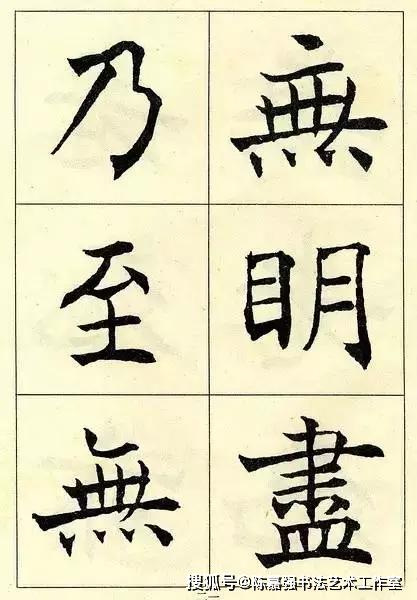 無明盡
乃至無
搜狐号@陈嘉强书法艺术工作室